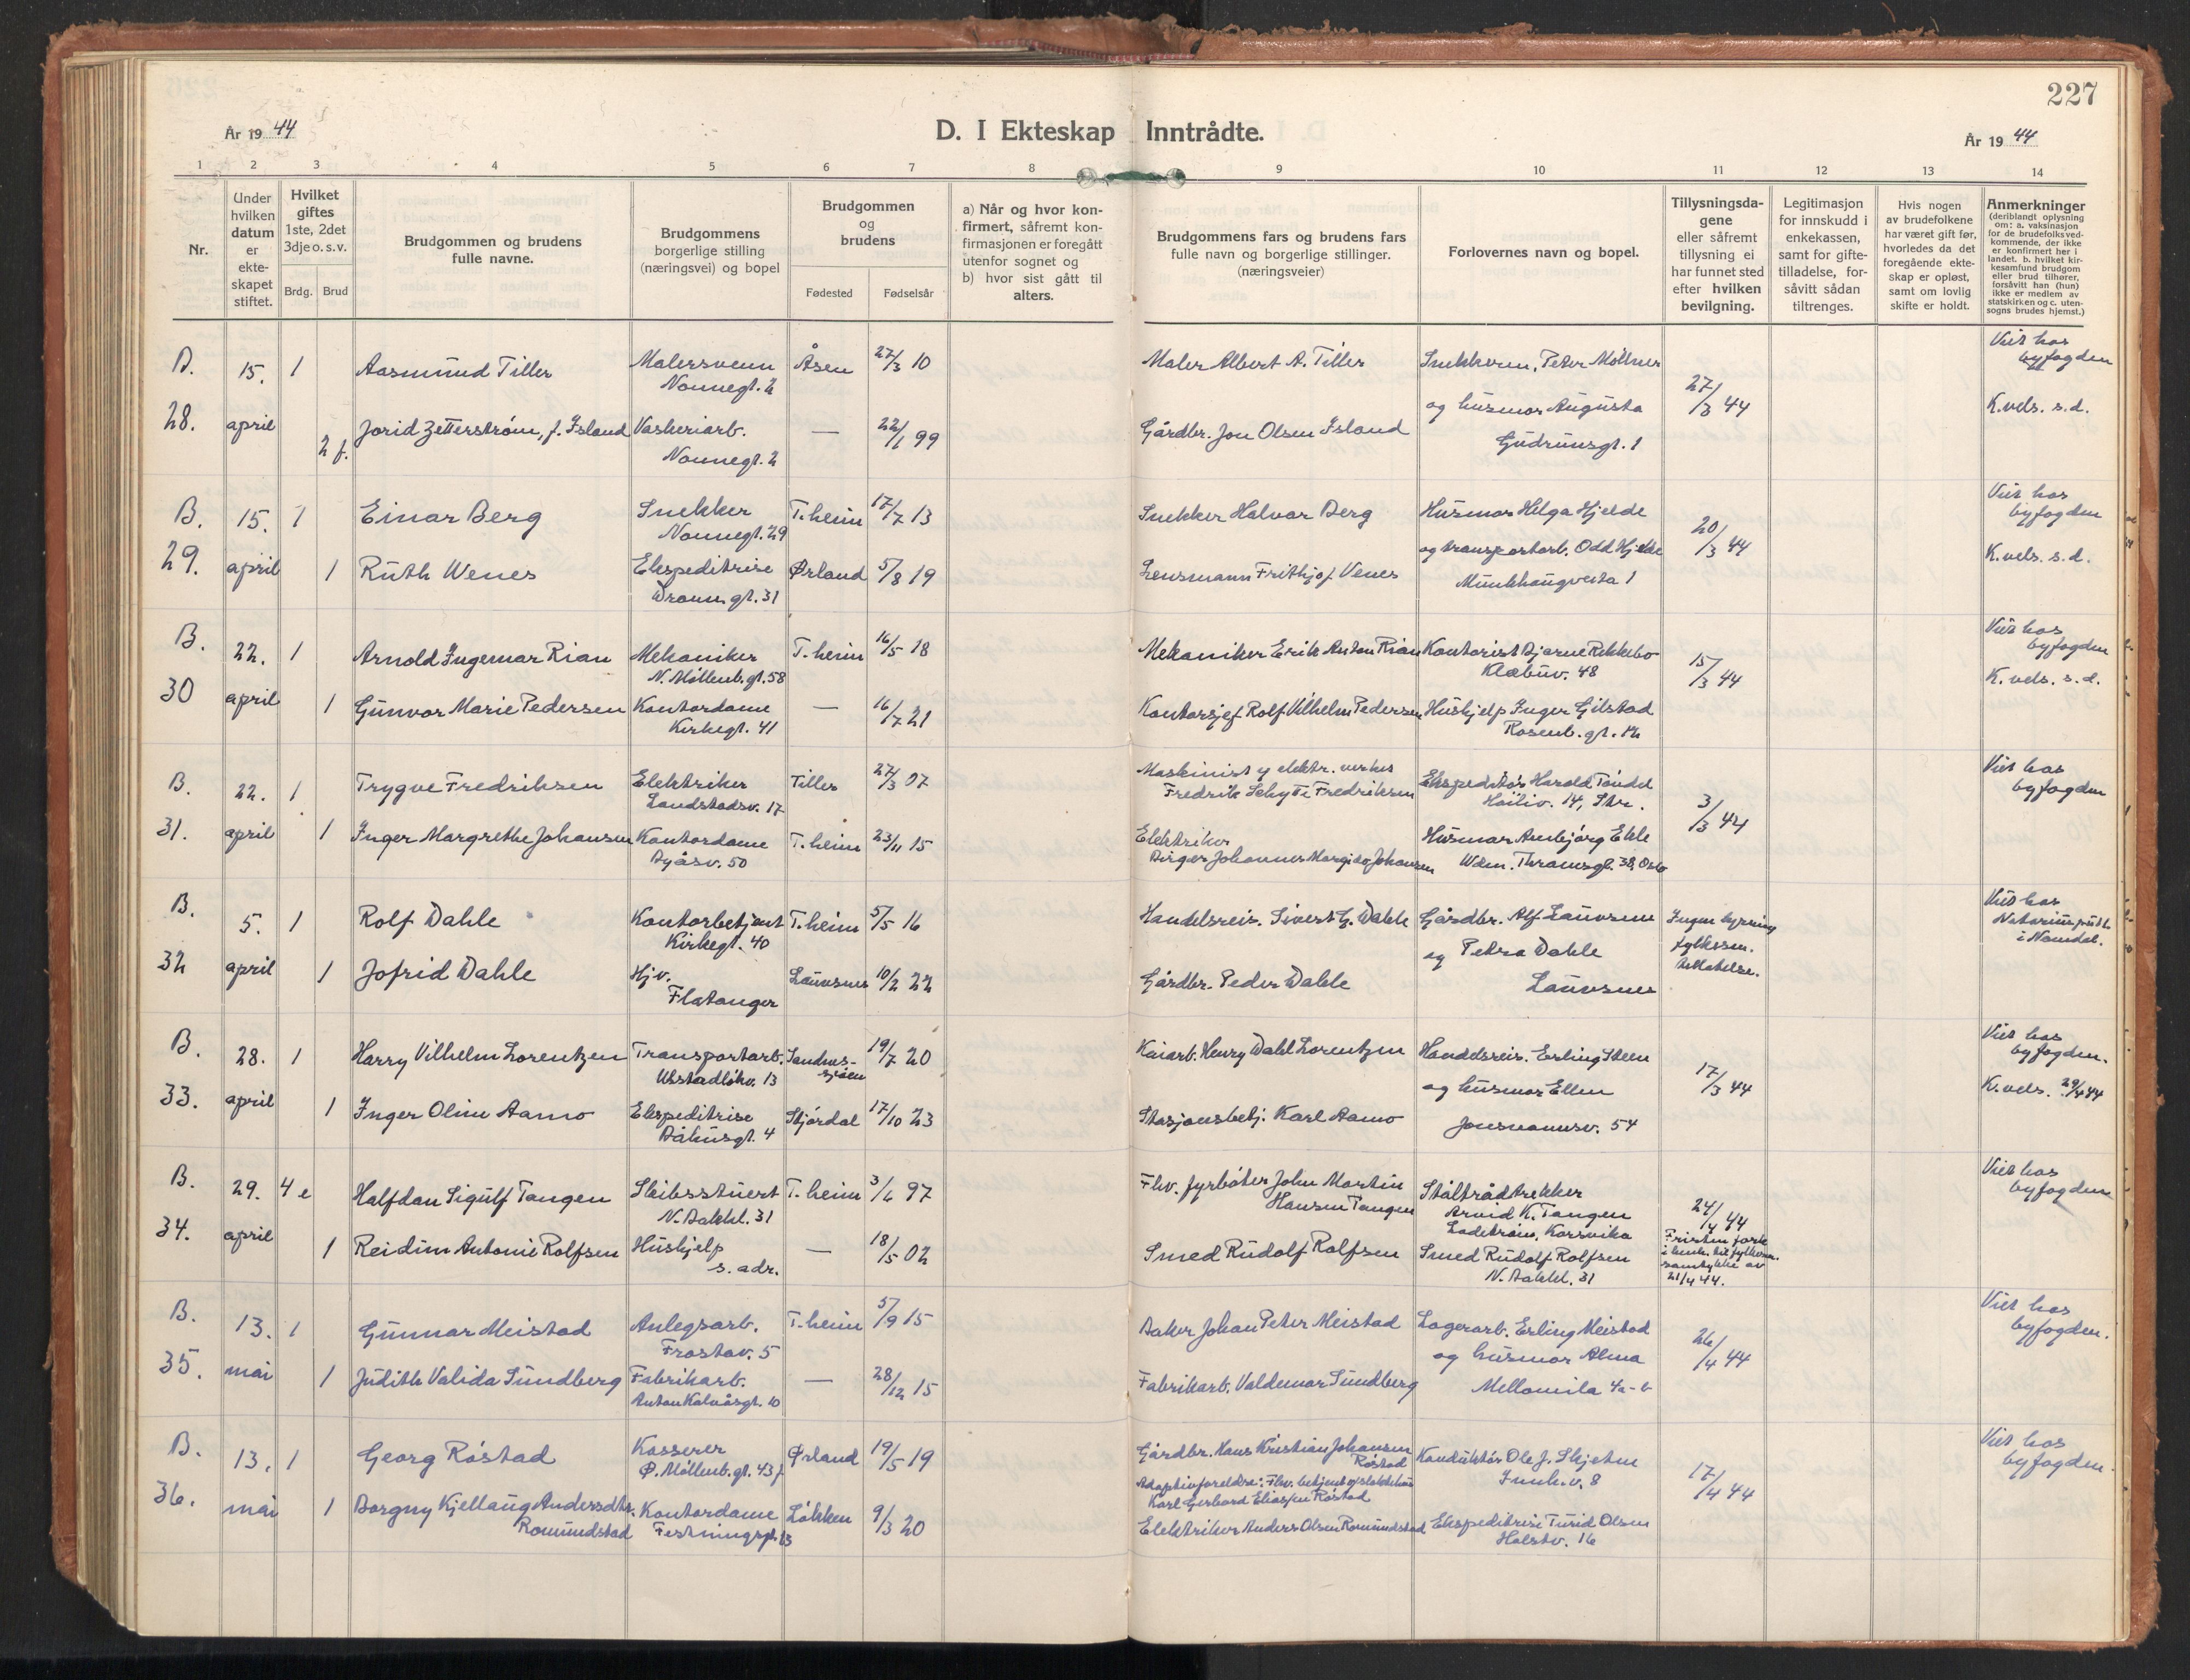 227
År 19 44
D. I Ekteskap Inntrådte.
År 19 44
1 2 3 4 5 6 7 8 9 10 11 12 13 14
Nr.
Under hvilken datum er ekteskapet stiftet.
Hvilket giftes 1ste, 2det 3dje o. s. v.
Brdg. Brud
Brudgommen og brudens fulle navne.
Brudgommens borgerlige stilling (næringsvei) og bopel
Brudgommen og brudens
Fødested Fødselsår
a) Når og hvor konfirmert, såfremt konfirmasjonen er foregått utenfor sognet og
b) hvor sist gått til alters.
Brudgommens fars og brudens fars fulle navn og borgerlige stillinger. (næringsveier)
Forlovernes navn og bopel.
Tillysningsdagene eller såfremt tillysning ei har funnet sted efter hvilken bevilgning.
Legitimasjon for innskudd i enkekassen, samt for giftetilladelse, forsåvitt sådan tiltrenges.
Hvis nogen av brudefolkene har været gift før, hvorledes da det foregående ekteskap er opløst, samt om lovlig skifte er holdt.
Anmerkninger (deriblandt oplysning om: a. vaksinasjon for de brudefolksvedkommende, der ikke er konfirmert her i landet. b. hvilket kirkesamfund brudgom eller brud tilhører, forsåvitt han (hun) ikke er medlem av statskirken og c. utensogns brudes hjemst.)
B. 15. 1 Aasmund Tiller Malersvenn Åsen 27/3 10 Maler Albert A. Tiller Snekkerm. Peter Möllner Viet hos
Nonnegt. 2 byfogden
28. april 2 f. Jorid Zetterstrøm, f. Island Vaskeriarb. — 22/1 99 Gårdbr. Jon Olsen Island og husmor Augusta 27/3 44 K.vels. s.d.
Nonnegt. 2 Gudrunsgt. 1
B. 15. 1 Einar Berg Snekker T.heim 17/7 13 Snekker Halvor Berg Husmor Helga Hjelde Viet hos
Nonnegt. 29 byfogden
29. april 1 Ruth Wenes Ekspeditrise Ørland 5/8 19 Lensmann Frithjof Venes og transportarb. Odd Hjelde 20/3 44 K.vels. s.d.
Dronn. gt. 31 Munkhaugveita 1
B. 22. 1 Arnold Ingemar Rian Mekaniker T.heim 16/5 18 Mekaniker Erik Anton Rian Kontorist Bjarne Rekkebo Viet hos
N. Møllenb. gt. 58 Klæbuv. 48 15/3 44 byfogden
30 april 1 Gunvor Marie Pedersen Kontordame — 16/7 21 Kontorsjef Rolf Vilhelm Pedersen Hushjelp Inger Gilstad K. vels. s.d.
Kirkegt. 41 Rosenb. gt. 12
B. 22. 1 Trygve Fredriksen Elektriker Tiller 27/3 07 Maskinist v elektr. verket Ekspeditør Harald Tondel Viet hos
Landstadsv. 17 Fredrik Schytte Fredriksen Hoiliv. 14, Str. byfogden
31. april 1 Inger Margrethe Johansen Kontordame T.heim 23/11 15 Elektriker Husmor Arnbjørg Ekle 3/3 44
Byåsv. 50 Birger Johannes Margido Johansen Wdm. Thranesgt. 38, Oslo
B. 5. 1 Rolf Dahle Kontorbetjent T.heim 5/5 16 Handelsreis. Sivert G. Dahle Gårdbr. Alf Lauvsnes Ingen lysning Viet hos
Kirkegt. 40 og Petra Dahle fylkesm. Notarius publ.
32 april 1 Jofrid Dahle Hj.v. Lauvsnes 10/2 22 Gårdbr. Peder Dahle Lauvsnes tillatelse. i Namdal.
Flatanger
B. 28. 1 Harry Vilhelm Lorentzen Transportarb. Sandnessjøen 19/7 20 Kaiarb. Henry Dahl Lorentzen Handelsreis. Erling Steen Viet hos
Ulstadløkv. 13 byfogden.
33. april 1 Inger Oline Aamo Ekspeditrise Stjørdal 17/10 23 Stasjonsbetj. Karl Aamo og husmor Ellen 17/3 44 K.vels. 29/4 44
Båhusgt. 4 Jonsvannsv. 54
B. 29. 4 e Halfdan Sigulf Tangen Skibsstuert T.heim 3/6 97 Fhv. fyrbøter John Martin Ståltrådtrekker Viet hos
N. Bakkl. 31 Hansen Tangen Arvid K. Tangen 24/4 44 byfogden
Ladestrøm, Korsvika Fristen fork.
34. april 1 Reidun Antonie Rolfsen Hushjelp — 18/5 02 Smed Rudolf Rolfsen Smed Rudolf Rolfsen i henh. til fylkesm.
s. adr. N. Bakkl. 31 samtykke av 21/4 44.
B. 13. 1 Gunnar Meistad Anlegsarb. T.heim 5/9 15 Baker Johan Peter Meistad Lagerarb. Erling Meistad Viet hos
Frostav. 5 byfogden.
35. mai 1 Judith Valida Sundberg Fabrikarb. — 28/12 15 Fabrikarb. Valdemar Sundberg og husmor Alma 26/4 44
Anton Kalvåsgt. 10 Mellomila 4a-b
B. 13. 1 Georg Røstad Kasserer Ørland 19/5 19 Gårdbr. Hans Kristian Johansen Røstad Konduktør Ole J. Skjetne Viet hos
Ø. Møllenb. gt. 43 f Adoptivforeldre: Fhv. betjent Innh.v. 8 17/4 44 byfogden.
Karl Gerhard Eliassen Røstad
36. mai 1 Borgny Kjellaug Andersdtr. Romundstad Kontordame Løkken 9/3 20 Elektriker Anders Olsen Romundstad Ekspeditrise Turid Olsen
Festningsgt. 13 Holstv. 16